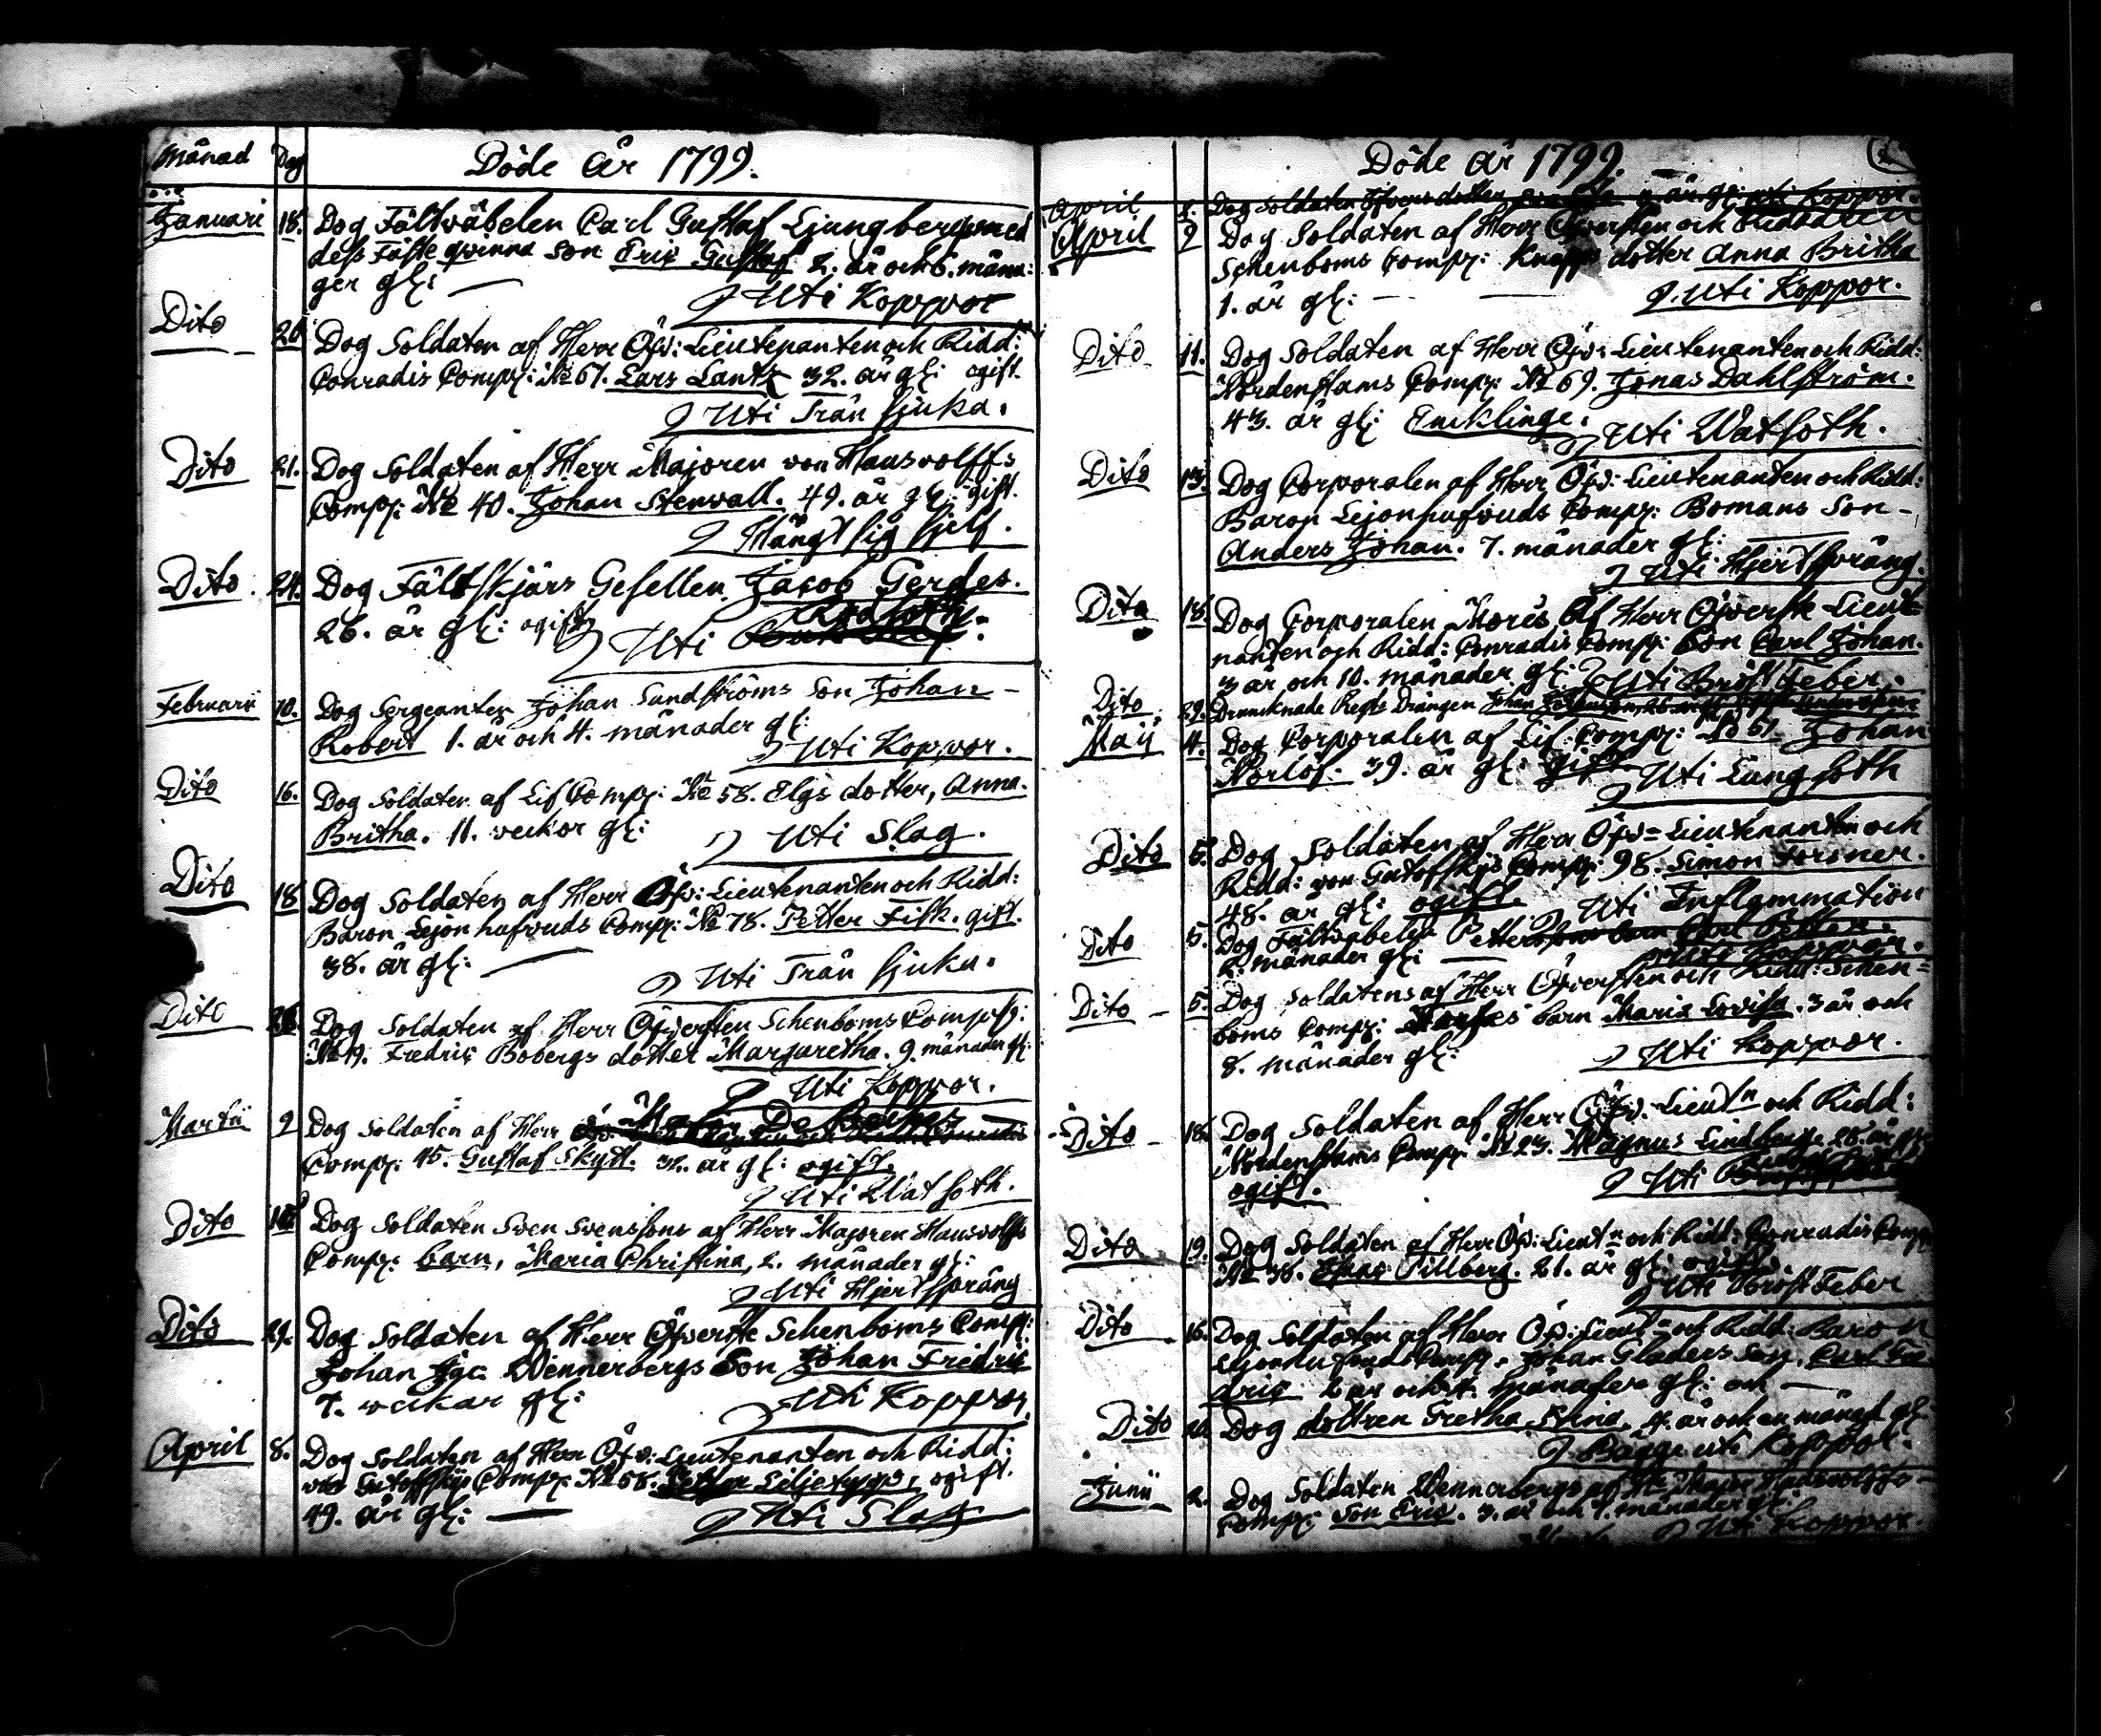 Månad Dag Döde År 1799.
1799
Januari 18. Dog Fältväbelen Carl Gustaf Ljungbergs med
dess Fäste qvinna son Eric Gustaf 2. år och 6. måna:
der gl:
Uti Koppor
Dito 20. Dog Soldaten af Herr Öfv: Lieutenanten och Ridd:
Conradis Comp: No 67. Lars Lantz 32. år gl: ogift.
Uti Trån sjuka.
Dito 21. Dog Soldaten af Herr Majoren von Hausvolffs
Comp: No 40. Johan Stenvall. 49. år gl: gift.
Hängt sig sjelf.
Dito 24. Dog Fältskjärs Gesellen Jacob Gerdes.
26. år gl: ogift
Rödsoth
Uti
Februarii 10. Dog Sergeanten Johan Sundströms Son Johan
Robert 1. år och 4. månader gl:
Uti Koppor.
Dito 16. Dog Soldaten af Lif Comp: No 58. Elgs dotter, Anna
Britha. 11. veckor gl:
Uti Slag.
Dito 18 Dog Soldaten af Herr Öfv: Lieutenanten och Ridd:
Baron Lejonhufvuds Comp: No 78. Petter Fisk. gift.
38. år gl:
Uti Trån sjuka.
Dito Dog Soldaten af Herr Öfversten Schenboms Comp:
No 19. Fredric Bobergs dotter Margaretha. 9. månader gl:
Uti Koppor.
Martii 9 Dog Soldaten af Herr Major De Besches
Comp: 45. Gustaf Skytt. 32. år gl: ogift.
Uti Watsoth.
Dito Dog Soldaten Sven Svenssons af Herr Majoren Hausvolffs
Comp: barn, Maria Christina, 2. månader gl:
Uti Hjertsprång
Dito 29. Dog Soldaten af Herr Öfverste Schenboms Comp:
Johan Wennerbergs Son Johan Fredric
7. veckor gl:
Uti Koppor
April 8. Dog Soldaten af Herr Öfv: Lieutenanten och Ridd:
von Gutoffskys Comp: No 58. Petter Liljetopp, ogift.
49. år gl:
Uti Slag
Döde År 1799.
April 8. Dog Soldaten dotter år gl: uti Koppor.
April 9 Dog Soldaten af Herr Öfversten och Riddaren
Schenboms Comp: Knapps dotter Anna Britha
1. år gl:
Uti Koppor.
Dito 11. Dog Soldaten af Herr Öfv: Lieutenanten och Ridd:
Nordenstams Comp: No 69. Jonas Dahlström.
43. år gl: Encklinge.
Uti Watsoth.
Dito 13. Dog Corporalen af Herr Öfv: Lieutenanten och Ridd:
Baron Lejonhufvuds Comp: Bomans Son
Anders Johan. 7. månader gl:
Uti Hjertsprång.
Dito 18. Dog Corporalen Morés af Herr Öfverste Lieut
nanten och Ridd: Conradis Comp: Son Carl Johan.
3 år och 10. månader gl:
Uti Bröst Feber.
Dito 29. Drunknade Regts Drängen Johan
Maij 4. Dog Corporalen af Lif Comp: No 61 Johan
Norlöf. 39. år gl: gift
Uti Lungsoth
Dito 5. Dog Soldaten af Herr Öfv: Lieutenanten och
Ridd: von Gutoffskys Comp: 98. Simon Forsner.
48. år gl: ogift.
Uti Inflammation
Dito 5. Dog Fältväbeln Petterssons barn Carl Petter.
2. månader gl:
Uti Koppor.
Dito 5. Dog Soldatens af Herr Öfversten och Ridd: Schen=
boms Comp: barn Maria Lovisa. 3 år och
8. månader gl:
Uti Koppor.
Dito 18. Dog Soldaten af Herr Öfv: Lieutn och Ridd:
Nordenstams Comp: No 23. Magnus Lindberg 28. år gl:
ogift.
Uti
Dito 19. Dog Soldaten af Herr Öfv: Lieutn och Ridd: Conradis Comp:
No 38. Tillberg. 21. år gl: ogift
Uti Bröst Feber
Dito 16. Dog Soldaten af Herr Öfv: Lieutn och Ridd: Baron
Lejonhufvuds Comp: Johan Gladers Son, Carl Fre
dric 2 år och 4. månader gl: och
Dito Dog dottren Gretha Stina. 4. år och en månad gl:
Bägge uti Koppor.
Junii 2. Dog Soldaten Wennerbergs af Hr Major Hausvolffs
Comp: Son Eric. 3. år och 7. månader gl:
Uti Koppor.